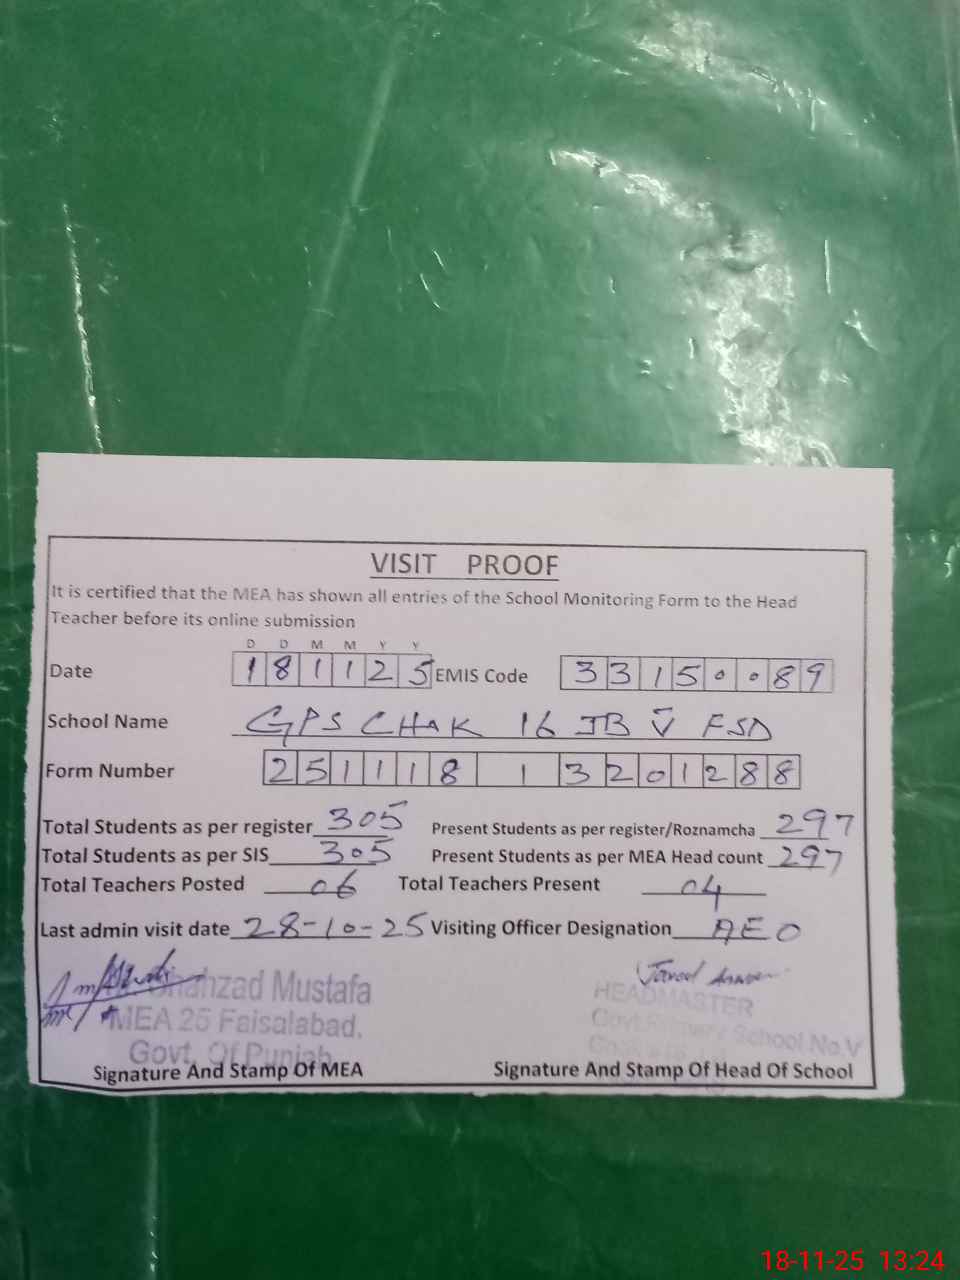 VISIT PROOF
It is certified that the MEA has shown all entries of the School Monitoring Form to the Head
Teacher before its online submission
D D M M Y Y
Date 181125 EMIS Code 33150089
School Name GPS CHAK 16 JB V FSD
Form Number 251118 1 3201288
Total Students as per register 305 Present Students as per register/Roznamcha 297
Total Students as per SIS 305 Present Students as per MEA Head count 297
Total Teachers Posted 06 Total Teachers Present 04
Last admin visit date 28-10-25 Visiting Officer Designation AEO
Shahzad Mustafa
MEA 25 Faisalabad.
Govt. Of Punjab
Signature And Stamp Of MEA
HEADMASTER
Govt. Primary School No.V
Signature And Stamp Of Head Of School
18-11-25 13:24